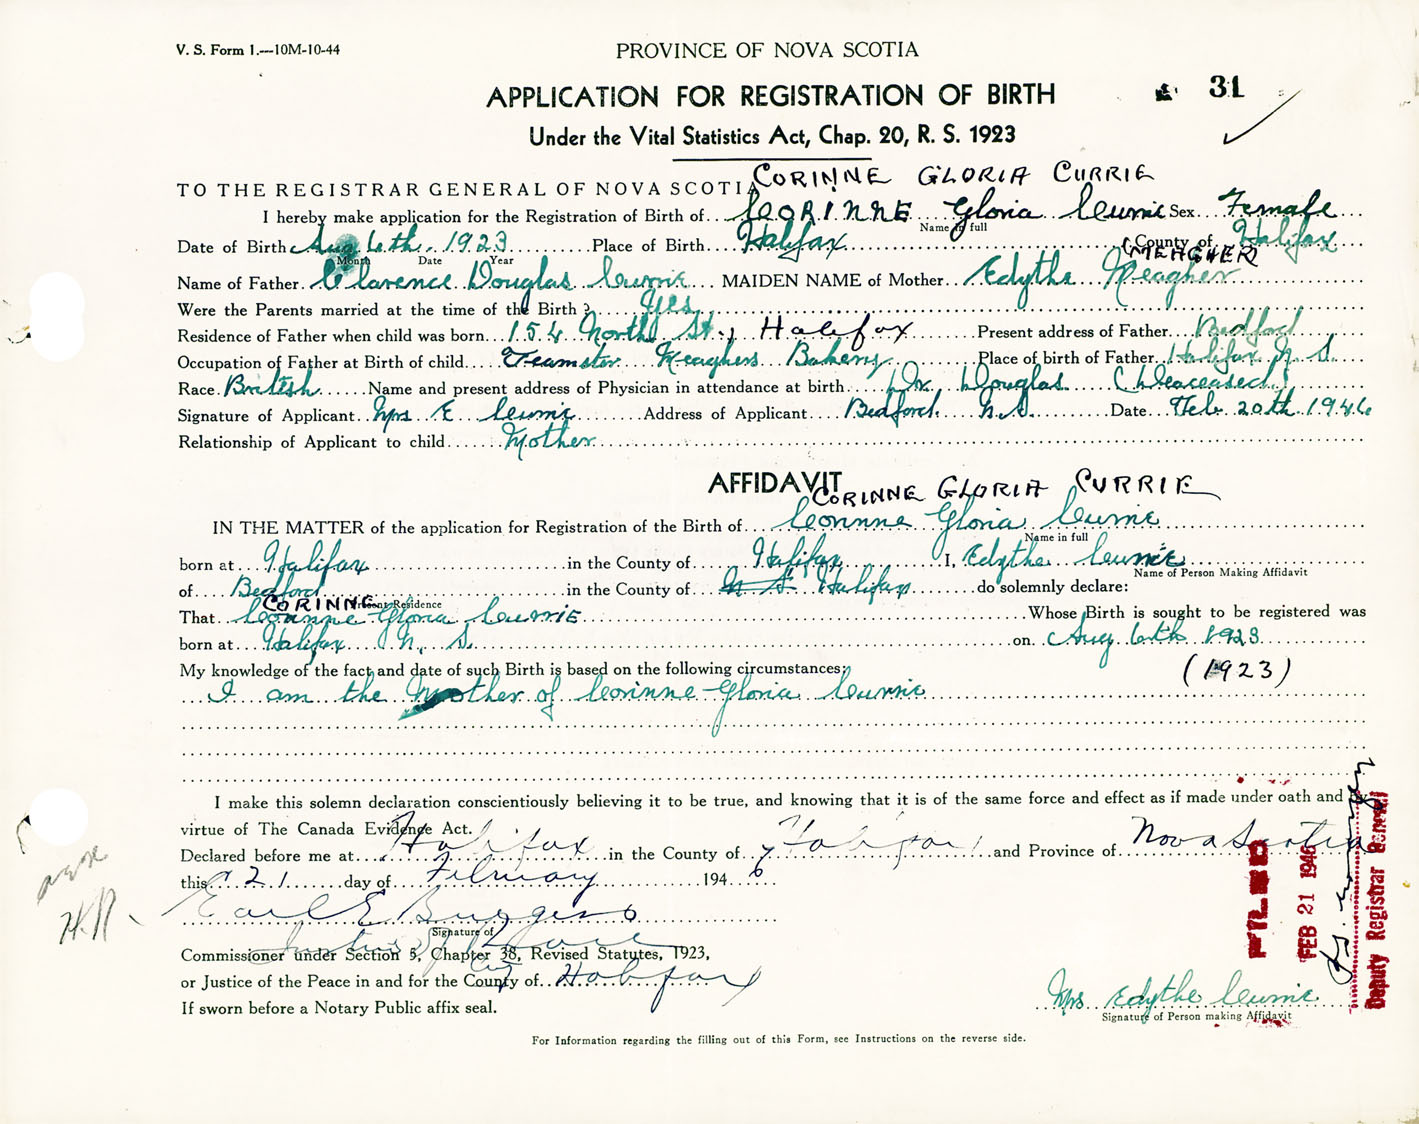 V. S. Form 1.—10M-10-44
PROVINCE OF NOVA SCOTIA
31
APPLICATION FOR REGISTRATION OF BIRTH
Under the Vital Statistics Act, Chap. 20, R. S. 1923
CORINNE GLORIA CURRIE
TO THE REGISTRAR GENERAL OF NOVA SCOTIA
I hereby make application for the Registration of Birth of CORINNE Gloria Currie Sex Female
Name in full
Date of Birth Aug 6th 1923 Place of Birth Halifax County of Halifax
Month Date Year
(MEAGHER)
Name of Father Clarence Douglas Currie MAIDEN NAME of Mother Edythe Meagher
Were the Parents married at the time of the Birth ? Yes
Residence of Father when child was born 154 North St., Halifax Present address of Father Bedford
Occupation of Father at Birth of child Teamster Meaghers Bakery Place of birth of Father Halifax N. S.
Race British Name and present address of Physician in attendance at birth Dr. Douglas (Deaceased)
Signature of Applicant Mrs E Currie Address of Applicant Bedford N.S. Date Feb. 20th 1946
Relationship of Applicant to child Mother
AFFIDAVIT
CORINNE GLORIA CURRIE
IN THE MATTER of the application for Registration of the Birth of Corinne Gloria Currie
Name in full
born at Halifax in the County of Halifax I, Edythe Currie
Name of Person Making Affidavit
of Bedford in the County of N S Halifax do solemnly declare:
CORINNE Present Residence
That Corinne Gloria Currie Whose Birth is sought to be registered was
born at Halifax N. S. on Aug 6th 1923
(1923)
My knowledge of the fact and date of such Birth is based on the following circumstances:
I am the Mother of Corinne Gloria Currie
I make this solemn declaration conscientiously believing it to be true, and knowing that it is of the same force and effect as if made under oath and by
virtue of The Canada Evidence Act.
Declared before me at Halifax in the County of Halifax and Province of Nova Scotia
this 21 day of February 1946
Earl E Burgess
Signature of
Justice of Peace
Commissioner under Section 5, Chapter 38, Revised Statutes, 1923,
or Justice of the Peace in and for the County of Halifax
If sworn before a Notary Public affix seal.
Mrs Edythe Currie
Signature of Person making Affidavit
FILED
FEB 21 1946
Deputy Registrar General
For Information regarding the filling out of this Form, see Instructions on the reverse side.